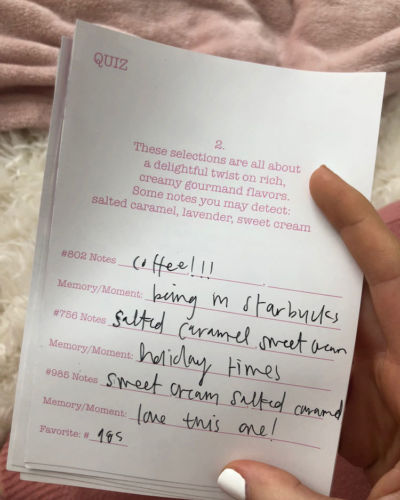 QUIZ
2.
These selections are all about
a delightful twist on rich,
creamy gourmand flavors.
Some notes you may detect:
salted caramel, lavender, sweet cream
#802 Notes coffee!!!
Memory/Moment: being in starbucks
#756 Notes salted caramel sweet cream
Memory/Moment: holiday times
#985 Notes sweet cream salted caramel
Memory/Moment: love this one!
Favorite: # 985